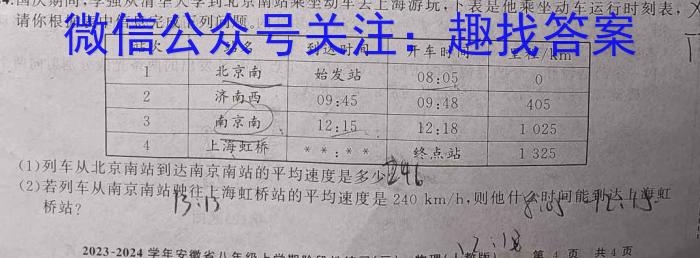 国庆期间,李强从清华大学到北京南站乘坐动车去上海游玩,下表是他乘坐动车运行时刻表,
请你根据表中信息完成下列问题。
微信公众号关注:趣找答案
到达时间 开车时间 里程/km
1 北京南 始发站 08:05 0
2 济南西 09:45 09:48 405
3 南京南 12:15 12:18 1 025
4 上海虹桥 **:** 终点站 1 325
(1)列车从北京南站到达南京南站的平均速度是多少 246
(2)若列车从南京南站驶往上海虹桥站的平均速度是 240 km/h,则他什么时间能到达上海虹
桥站? 13:13 8:05 12:15
12:18
2023-2024 学年安徽省八年级上学期 第 4 页 共 4 页